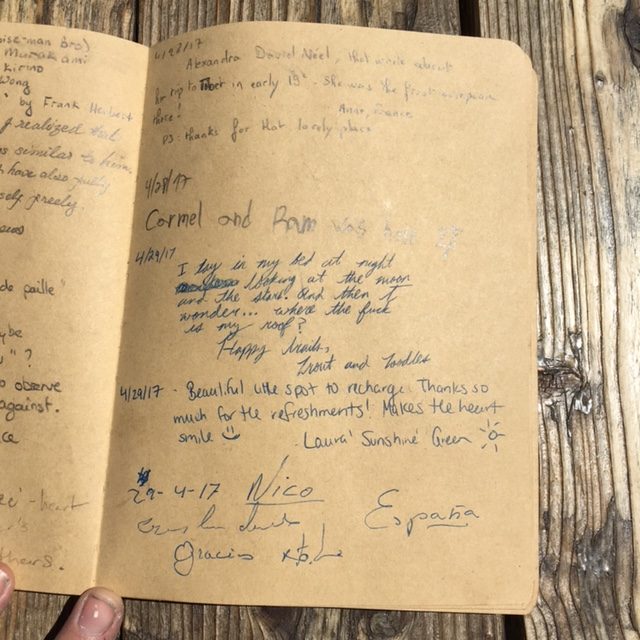 ise-man bro)
Murakami
Kirino
Wong
" by Frank Herbert
realized that
s similar to him,
have also
freely.
de paille"
ybe
" ?
o observe
against.
ce
heart
thers.
4/28/17
Alexandra David Neel, that wrote about
her trip to Tibet in early 19 - She was the first european
there!
Anne, France
PS: thanks for that lovely place
4/28/17
Carmel and Ram was here
4/29/17
I lay in my bed at night
looking at the moon
and the stars. And then I
wonder... where the fuck
is my roof?
Happy trails,
Trout and Toodles
4/29/17 - Beautiful little spot to recharge. Thanks so
much for the refreshments! Makes the heart
smile
- Laura 'Sunshine' Green
29-4-17 Nico
España
Gracias